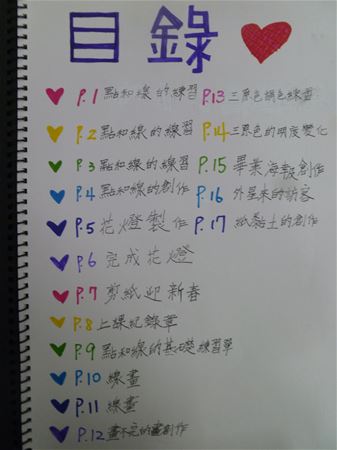 目錄
P.1 點和線的練習
P.2 點和線的練習
P.3 點和線的練習
P.4 點和線的創作
P.5 花燈製作
P.6 完成花燈
P.7 剪紙迎新春
P.8 上課紀錄單
P.9 點和線的基礎練習單
P.10 線畫
P.11 線畫
P.12 畫不完的畫創作
P.13 三原色調色練習
P.14 三原色的明度變化
P.15 畢業海報創作
P.16 外星來的訪客
P.17 紙黏土的創作